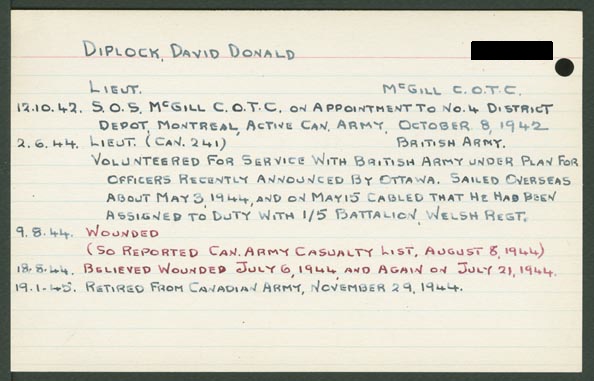 DIPLOCK, DAVID DONALD
LIEUT. McGILL C.O.T.C.
12.10.42. S.O.S. McGILL C.O.T.C. ON APPOINTMENT TO NO.4 DISTRICT
DEPOT, MONTREAL, ACTIVE CAN. ARMY, OCTOBER 8, 1942
2.6.44. LIEUT. (CAN. 241) BRITISH ARMY.
VOLUNTEERED FOR SERVICE WITH BRITISH ARMY UNDER PLAN FOR
OFFICERS RECENTLY ANNOUNCED BY OTTAWA. SAILED OVERSEAS
ABOUT MAY 3, 1944, AND ON MAY 15 CABLED THAT HE HAD BEEN
ASSIGNED TO DUTY WITH 1/5 BATTALION, WELSH REGT.
9.8.44. WOUNDED
(SO REPORTED CAN. ARMY CASUALTY LIST, AUGUST 8, 1944)
18.8.44. BELIEVED WOUNDED JULY 6, 1944, AND AGAIN ON JULY 21, 1944.
19.1.45. RETIRED FROM CANADIAN ARMY, NOVEMBER 29, 1944.